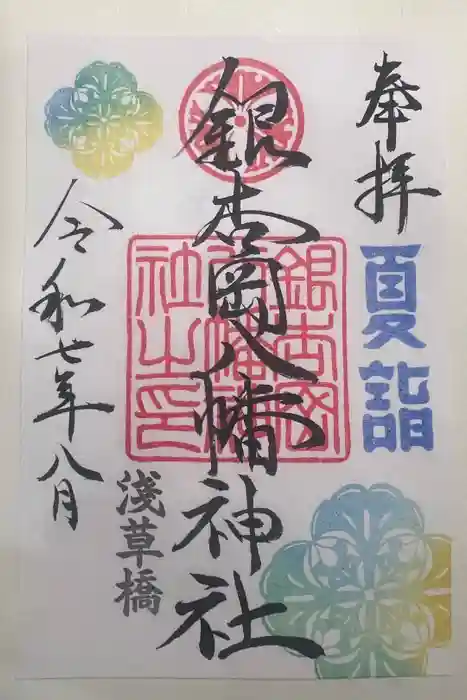 奉拝
夏詣
銀杏岡八幡神社
銀杏岡
八幡神
社之印
浅草橋
令和七年八月